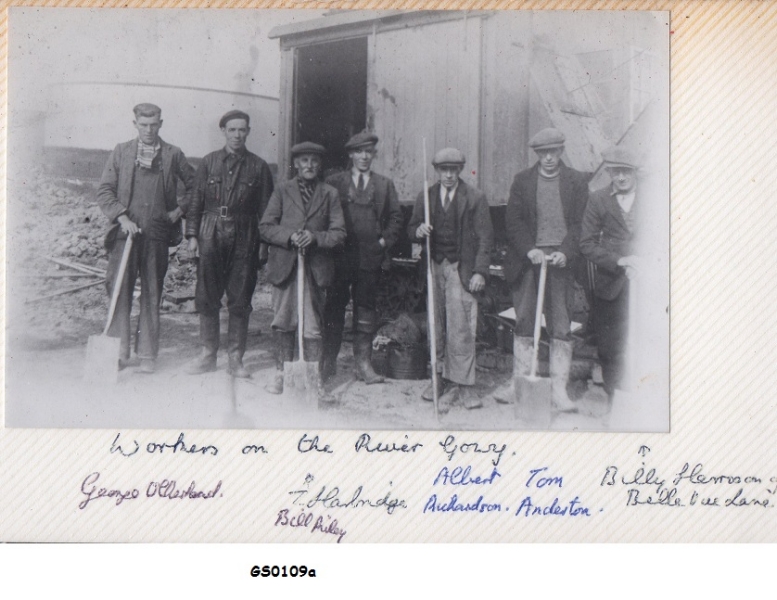 Workers on the River Gowy.
George
T. Hartridge
Bill Riley
Albert Richardson.
Tom Anderton.
↑
Billy Harroson of
Belle Vue Lane.
GS0109a